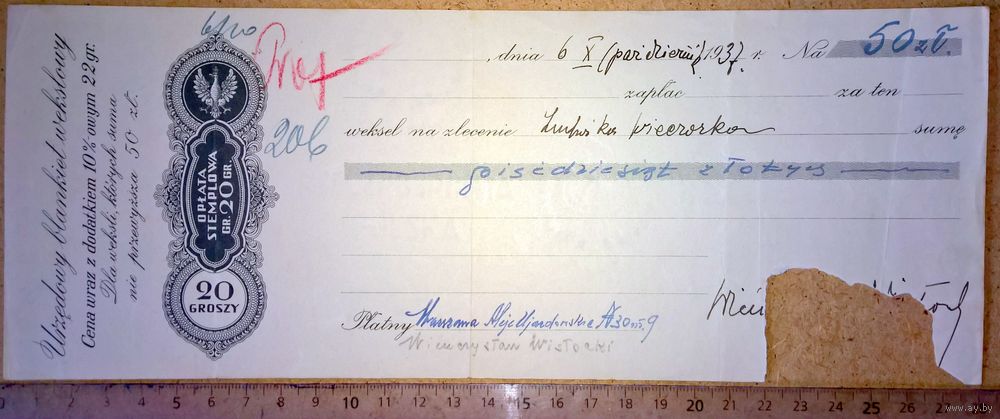 Urzędowy blankiet wekslowy
Cena wraz z dodatkiem 10% owym 22 gr.
Dla weksli, których suma
nie przewyższa 50 zł.
OPŁATA
STEMPLOWA
GR. 20 GR.
20
GROSZY
206
, dnia 6 X (październik) 1937 r. Na 50 zł.
zapłac za ten
weksel na zlecenie Wieczorka sumę
pięćdziesiąt złotych
Płatny Warszawa Aleje Ujazdowskie 30 m 9
Wieńczysław Wisłocki
0 1 2 3 4 5 6 7 8 9 10 11 12 13 14 15 16 17 18 19 20 21 22 23 24 25 26 27 28
www.ay.by